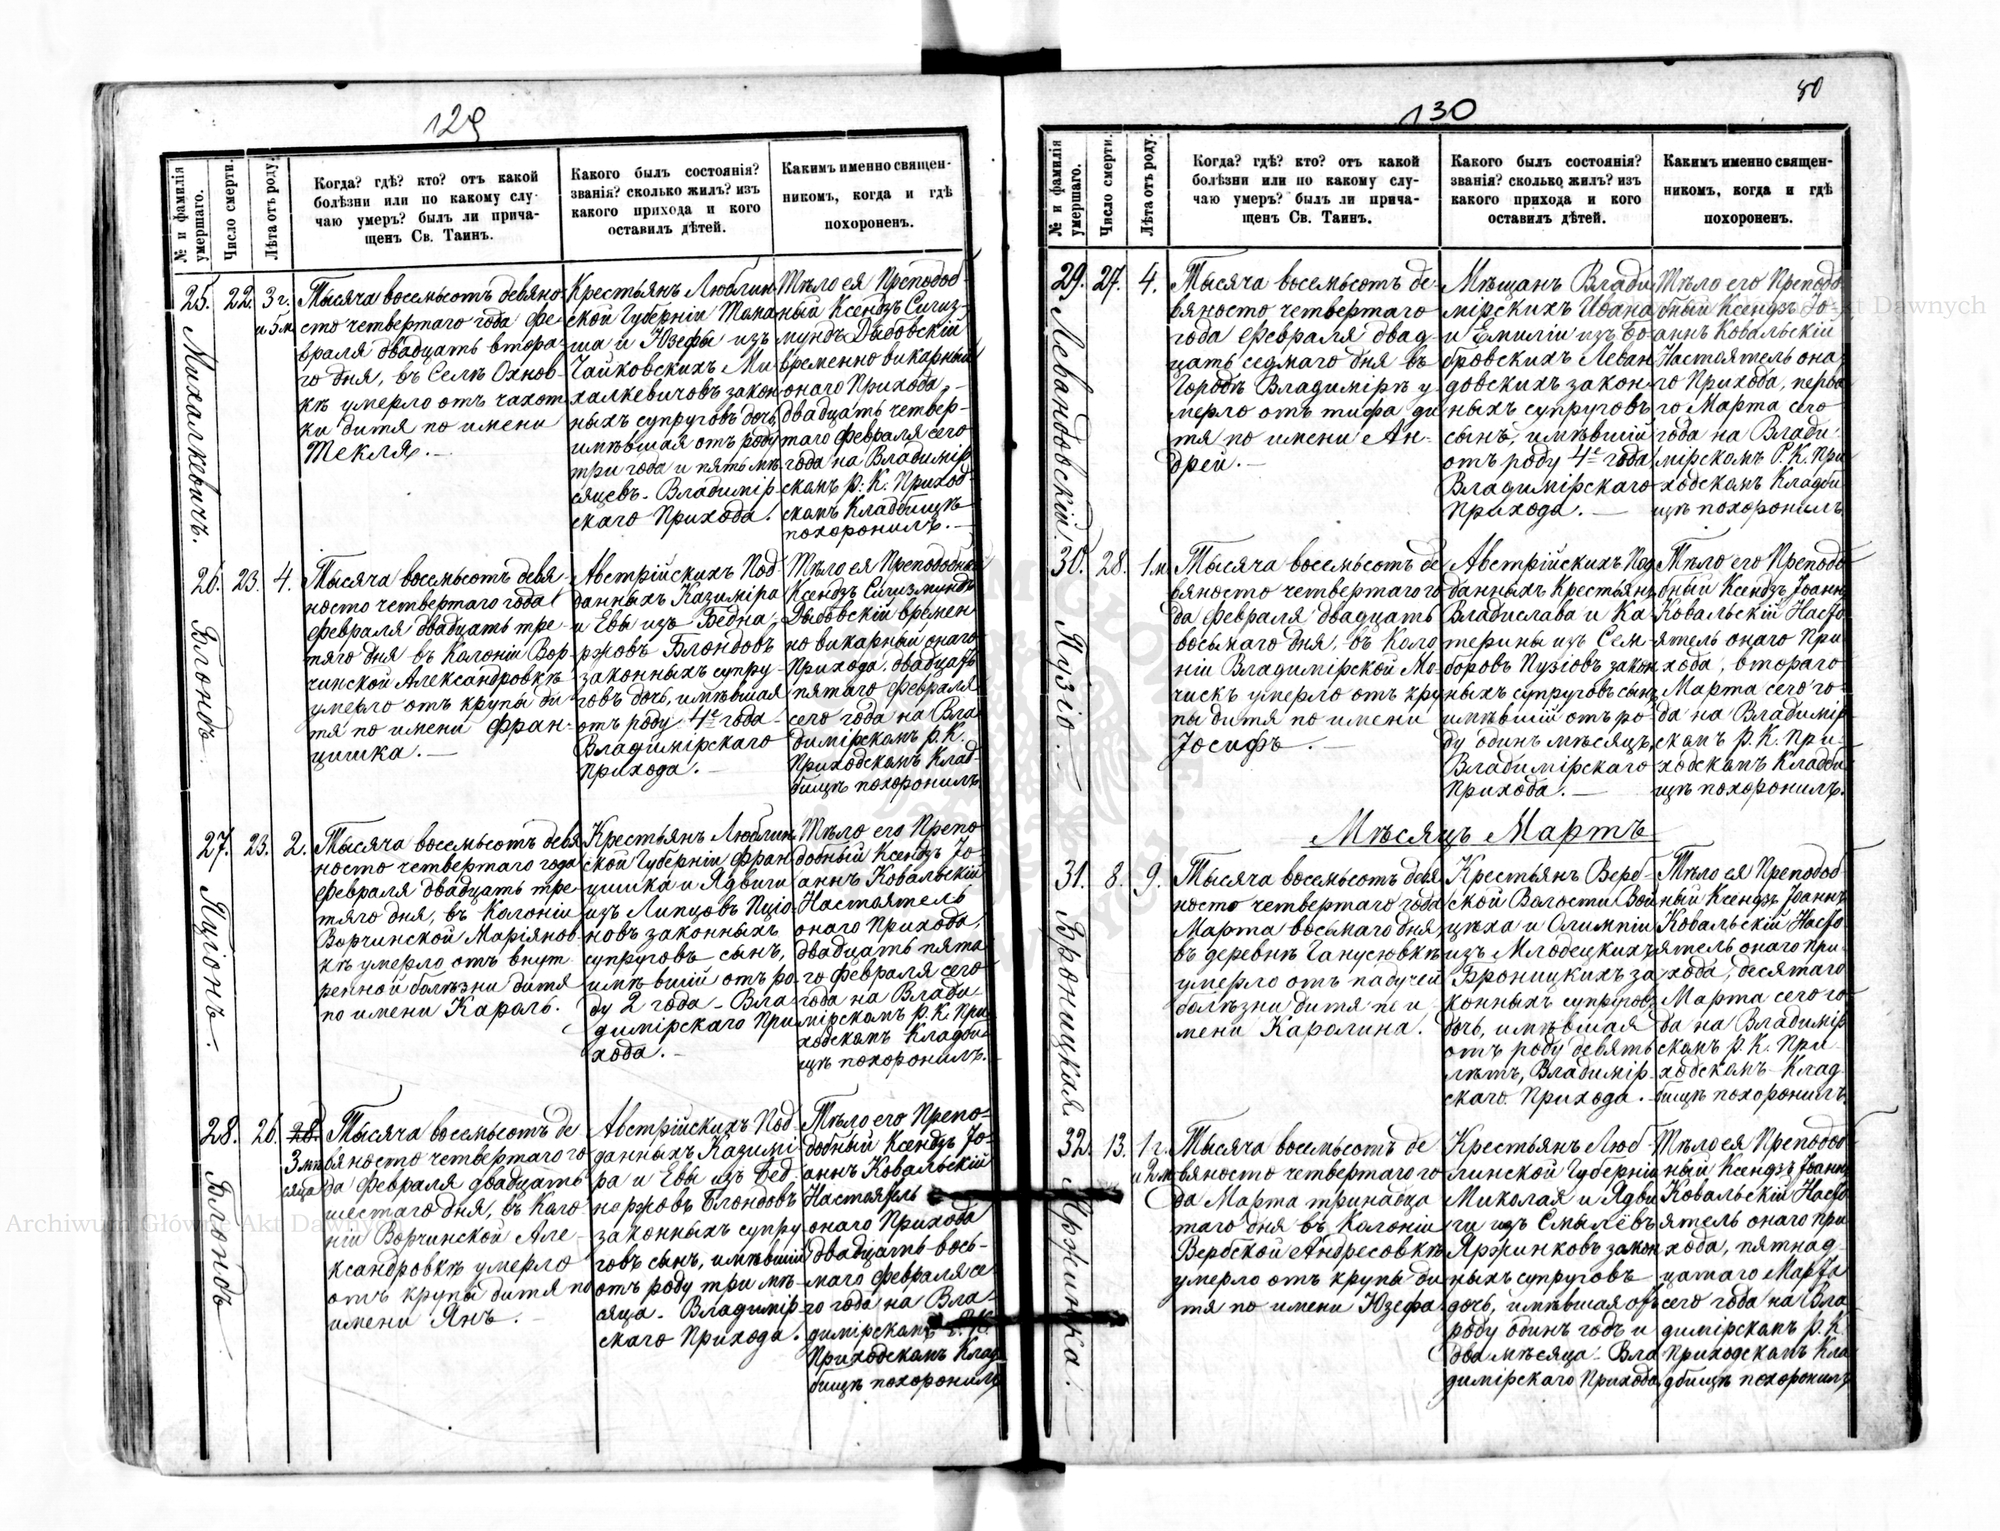 129
№ и фамилія умершаго.
Число смерти.
Лѣта отъ роду.
Когда? гдѣ? кто? отъ какой
болѣзни или по какому слу-
чаю умеръ? былъ ли прича-
щенъ Св. Таинъ.
Какого былъ состоянія?
званія? сколько жилъ? изъ
какого прихода и кого
оставилъ дѣтей.
Какимъ именно священ-
никомъ, когда и гдѣ
похороненъ.
25. Михалкевичъ.
22.
3 г.
и 5 м.
Тысяча восемьсотъ девяно-
сто четвертаго года Фе-
враля двадцать втора-
го дня, въ Селѣ Охнов-
кѣ умерло отъ чахот-
ки дитя по имени
Текля. —
Крестьянъ Люблин-
ской Губерніи Тома-
ша и Юзефы изъ
Чайковскихъ Ми-
халкевичовъ закон-
ныхъ супруговъ дочь,
имѣвшая отъ роду
три года и пять мѣ-
сяцевъ. Владимір-
скаго Прихода.
Тѣло ея Преподоб-
ный Ксендзъ Сигиз-
мундъ Дыбовскій
временно викарный
онаго Прихода,
двадцать четвер-
таго Февраля сего
года на Владимір-
скомъ Р. К. Приход-
скомъ Кладбищѣ
похоронилъ. —
26. Блондъ.
23.
4.
Тысяча восемьсотъ девя-
носто четвертаго года
Февраля двадцать тре-
тяго дня въ Колоніи Вор-
чинской Александровкѣ
умерло отъ крупы ди-
тя по имени Фран-
цишка. —
Австрійскихъ Под-
данныхъ Казиміра
и Евы изъ Бедна-
ржовъ Блондовъ
законныхъ супру-
говъ дочь, имѣвшая
отъ роду 4е года
Владимірскаго
Прихода. —
Тѣло ея Преподобный
Ксендзъ Сигизмундъ
Дыбовскій времен-
но викарный онаго
Прихода, двадцать
пятаго Февраля
сего года на Вла-
димірскомъ Р. К.
Приходскомъ Клад-
бищѣ похоронилъ.
27. Пціонъ.
23.
2.
Тысяча восемьсотъ девя-
носто четвертаго года
Февраля двадцать тре-
тяго дня, въ Колоніи
Ворчинской Маріянов-
кѣ умерло отъ внут-
ренной болѣзни дитя
по имени Кароль.
Крестьянъ Люблин-
ской Губерніи Фран-
цишка и Ядвиги
изъ Липцовъ Пціо-
новъ законныхъ
супруговъ сынъ,
имѣвшій отъ ро-
ду 2 года - Вла-
димірскаго При-
хода. —
Тѣло его Препо-
добный Ксендзъ Іо-
аннъ Ковальскій
Настоятель
онаго Прихода,
двадцать пята-
го Февраля сего
года на Влади-
мірскомъ Р. К. При-
ходскомъ Кладби-
щѣ похоронилъ.
28. Блондъ.
26.
3 мѣ-
сяца
Тысяча восемьсотъ де-
вяносто четвертаго го-
да Февраля двадцать
шестаго дня, въ Коло-
ніи Ворчинской Але-
ксандровкѣ умерло
отъ крупы дитя по
имени Янъ. —
Австрійскихъ Под-
данныхъ Казимі-
ра и Евы изъ Бед-
наржовъ Блондовъ
законныхъ супру-
говъ сынъ, имѣвшій
отъ роду три мѣ-
сяца. Владимір-
скаго Прихода.
Тѣло его Препо-
добный Ксендзъ Іо-
аннъ Ковальскій
Настоятель
онаго Прихода
двадцать вось-
маго Февраля се-
го года на Вла-
димірскомъ Р. К.
Приходскомъ Клад-
бищѣ похоронилъ
130
50
№ и фамилія умершаго.
Число смерти.
Лѣта отъ роду.
Когда? гдѣ? кто? отъ какой
болѣзни или по какому слу-
чаю умеръ? былъ ли прича-
щенъ Св. Таинъ.
Какого былъ состоянія?
званія? сколько жилъ? изъ
какого прихода и кого
оставилъ дѣтей.
Какимъ именно священ-
никомъ, когда и гдѣ
похороненъ.
29. Левандовскій.
27.
4.
Тысяча восемьсотъ де-
вяносто четвертаго
года Февраля двад-
цать седмаго дня въ
Городѣ Владимірѣ у-
мерло отъ тифа ди-
тя по имени Ан-
дрей. —
Мѣщанъ Влади-
мірскихъ Ивана
и Емиліи изъ Бо-
бровскихъ Леван-
довскихъ закон-
ныхъ супруговъ
сынъ, имѣвшій
отъ роду 4е года
Владимірскаго
Прихода. —
Тѣло его Преподо-
бный Ксендзъ Іо-
аннъ Ковальскій
Настоятель она-
го Прихода, перва-
го Марта сего
года на Влади-
мірскомъ Р. К. При-
ходскомъ Кладби-
щѣ похоронилъ
30. Пузіо. —
28.
1 м.
Тысяча восемьсотъ де-
вяносто четвертаго го-
да Февраля двадцать
восьмаго дня, въ Коло-
ніи Владимірской Мо-
чискѣ умерло отъ кру-
пы дитя по имени
Іосифъ. —
Австрійскихъ Под-
данныхъ Крестьянъ
Владислава и Ка-
терины изъ Сем-
боровъ Пузіовъ закон-
ныхъ супруговъ сынъ,
имѣвшій отъ ро-
ду одинъ мѣсяцъ,
Владимірскаго
Прихода. —
Тѣло его Преподо-
бный Ксендзъ Іоаннъ
Ковальскій Насто-
ятель онаго При-
хода, втораго
Марта сего го-
да на Владимір-
скомъ Р. К. При-
ходскомъ Кладби-
щѣ похоронилъ.
Мѣсяцъ Мартъ
31. Броницкая
8.
9.
Тысяча восемьсотъ девя-
носто четвертаго года
Марта восьмаго дня,
въ деревнѣ Ганусювкѣ
умерло отъ падучей
болѣзни дитя по и-
мени Каролина.
Крестьянъ Верб-
ской Волости Вой-
цѣха и Олимпіи
изъ Млодецкихъ
Броницкихъ за-
конныхъ супруговъ
дочь, имѣвшая
отъ роду девять
лѣтъ, Владимір-
скаго Прихода. —
Тѣло ея Преподоб-
ный Ксендзъ Іоаннъ
Ковальскій Насто-
ятель онаго При-
хода, десятаго
Марта сего го-
да на Владимір-
скомъ Р. К. При-
ходскомъ Клад-
бищѣ похоронилъ
32. Яржинка. —
13.
1 г.
и 2 м.
Тысяча восемьсотъ де-
вяносто четвертаго го-
да Марта тринадца-
таго дня въ Колоніи
Вербской Андресовкѣ
умерло отъ крупы ди-
тя по имени Юзефа
Крестьянъ Люб-
линской Губерніи
Миколая и Ядви-
ги изъ Смылёвъ
Яржинковъ закон-
ныхъ супруговъ
дочь, имѣвшая отъ
роду одинъ годъ и
два мѣсяца. Вла-
димірскаго Прихода
Тѣло ея Преподоб-
ный Ксендзъ Іоаннъ
Ковальскій Насто-
ятель онаго При-
хода, пятнад-
цатаго Марта
сего года на Вла-
димірскомъ Р. К.
Приходскомъ Кла-
дбищѣ похоронилъ
Archiwum Główne Akt Dawnych
Archiwum Główne Akt Dawnych